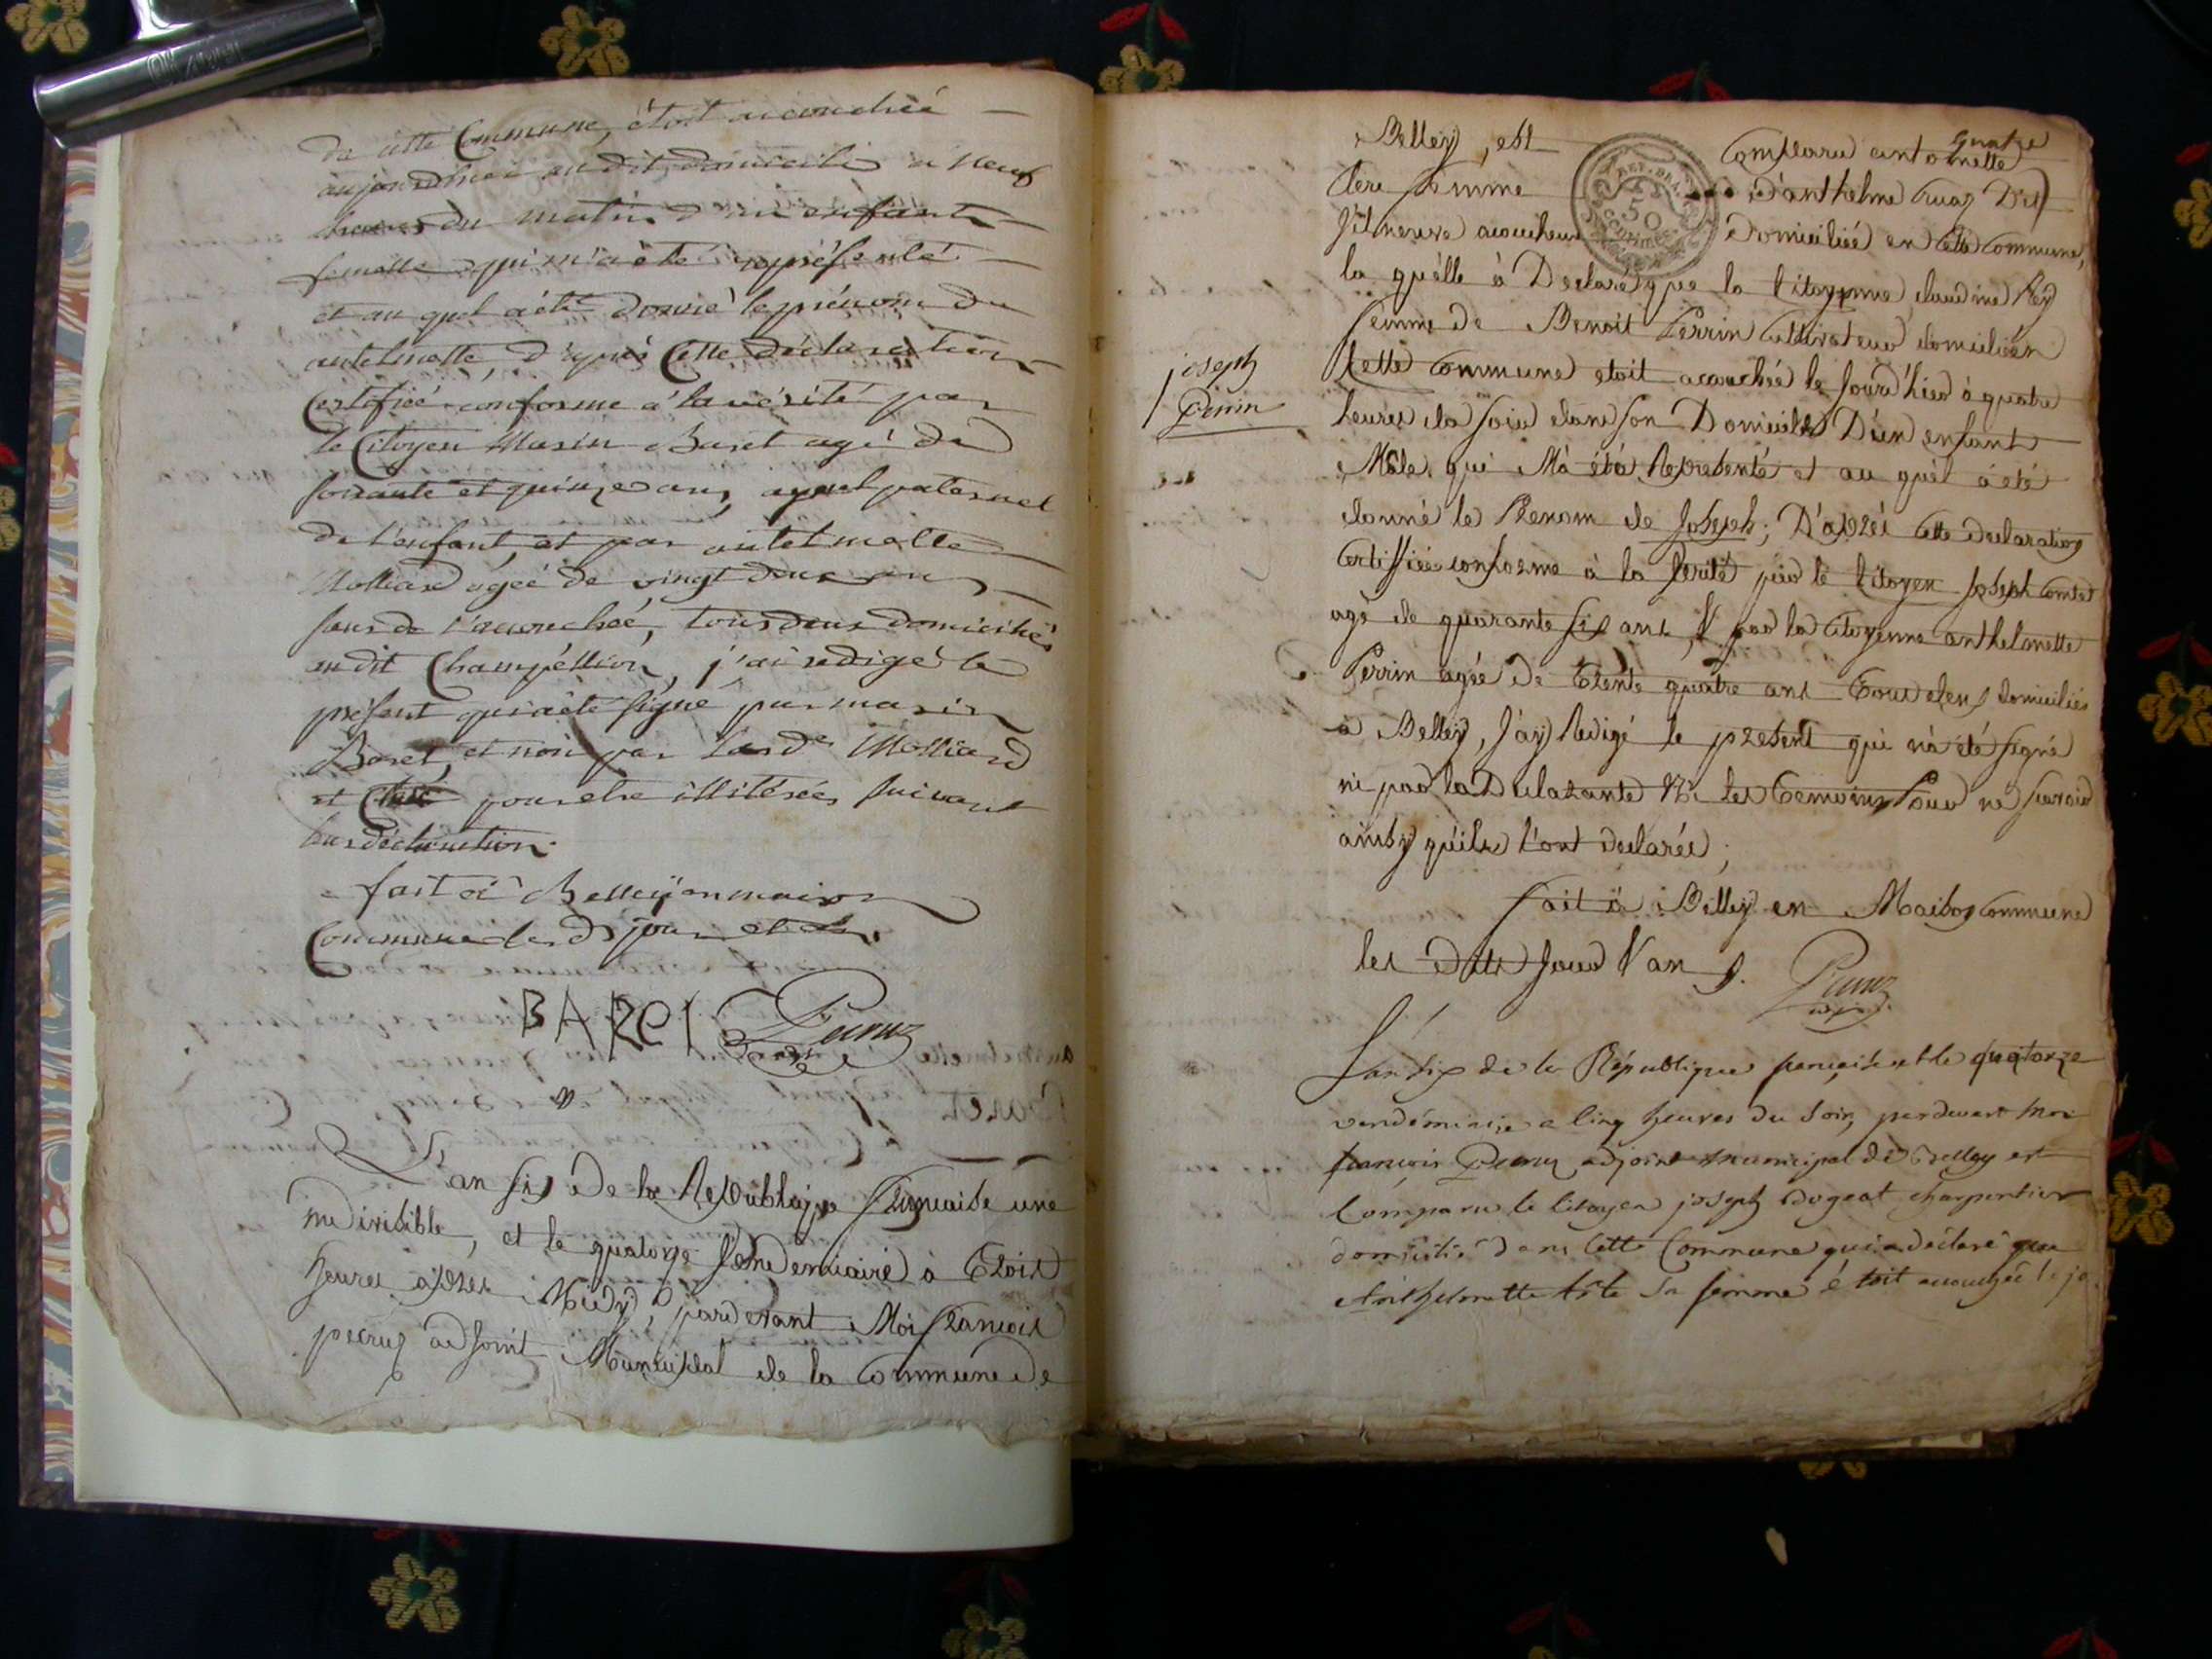 de cette Commune, étoit accouchéé
aujourdhui au dit domicile a neuf
heures du matin d'un enfant
femelle qui m'a été représenté
et au quel a été donné le prénom de
antelmette, d'après Cette déclaration
Certifiée conforme a la vérité par
le Citoyen Marin Baret agé de
soixante et quinze ans, ayeul paternel
de l'enfant, et par antelmette
Molliard agée de vingt deux ans
sœur de l'accouchéé, tous deux domiciliés
au dit Champétion, j'ai redigé le
présent qui a été signé par marin
Baret, et non par Molliard
et pour etre illiterées suivant
leur déclaration.
fait a Belley en maison
Commune les d. jour et an.
BAREt Peruz
adj
L'an six de la Republique française une
indivisible, et le quatorze Vendemiaire à Trois
heures après Midy, pardevant Moi françois
peruz adjoint Municipal de la Commune de
quatre
Belley, est Comparu antoinette
REP. FRA.
50
CENTIMES
femme d'anthelme Cuaz Dit
acoucheuse Domiciliée en cette Commune,
la quelle à Declaré que la Citoyenne claudine Rey
femme de Benoit Perrin Cultivateur domicilié en
Cette Commune etoit acouchée le Jour d'hier à quatre
joseph
Perrin
heures du soir dans son Domicille D'un enfant
Mâle, qui M'à été Représenté et au quel à été
donné le Prenom de Joseph; D'après Cette Declaration
Certiffiée conforme à la Verité par le Citoyen Joseph Comtet
agé de quarante six ans, & par la Citoyenne anthelmette
Perrin agée de Trente quatre ans Tous deux domiciliés
a Belley, J'ay Redigé le present qui n'à été signé
ni par la Declarante Ni les Temoins Pour ne savoir
ainsy qu'ils l'ont declarés;
fait à Belley en Maison Commune
les Dits Jour & an.
Peruz
adj.
L'an six de la République française et le quatorze
vendémiaire a Cinq heures du Soir, pardevant moi
françois Peruz adjoint municipal de Belley est
Comparu le Citoyen joseph Dogeat charpentier
domicilié dans Cette Commune qui a déclaré que
Anthelmette sa femme étoit accouchée le jo
anthelmette
Baret